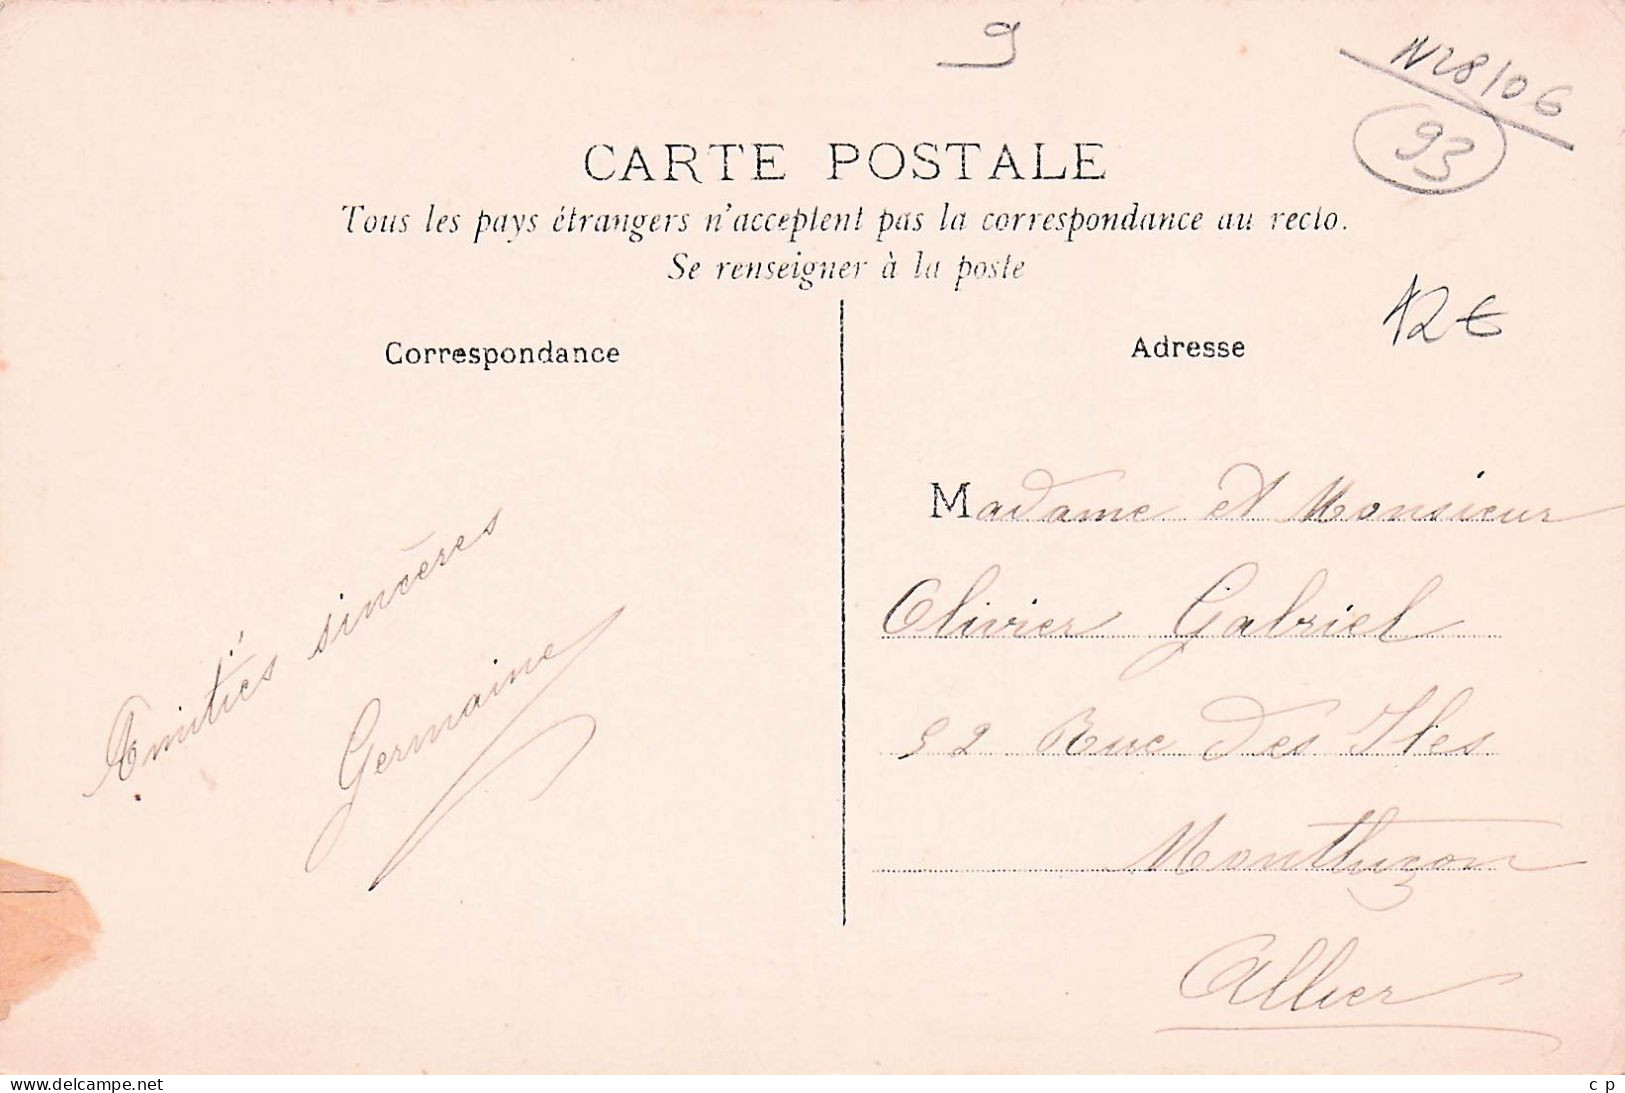 9
N28106
93
CARTE POSTALE
Tous les pays étrangers n'acceptent pas la correspondance au recto.
Se renseigner à la poste
12€
Correspondance
Amitiés sincères
Germaine
Adresse
Madame et Monsieur
Olivier Gabriel
52 Rue des Iles
Montluçon
Allier
www.delcampe.net
c p